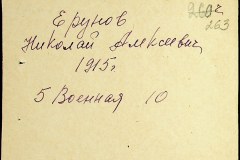 263
Ерунов
Николай Алексеевич
1915г.
5 Военная 10